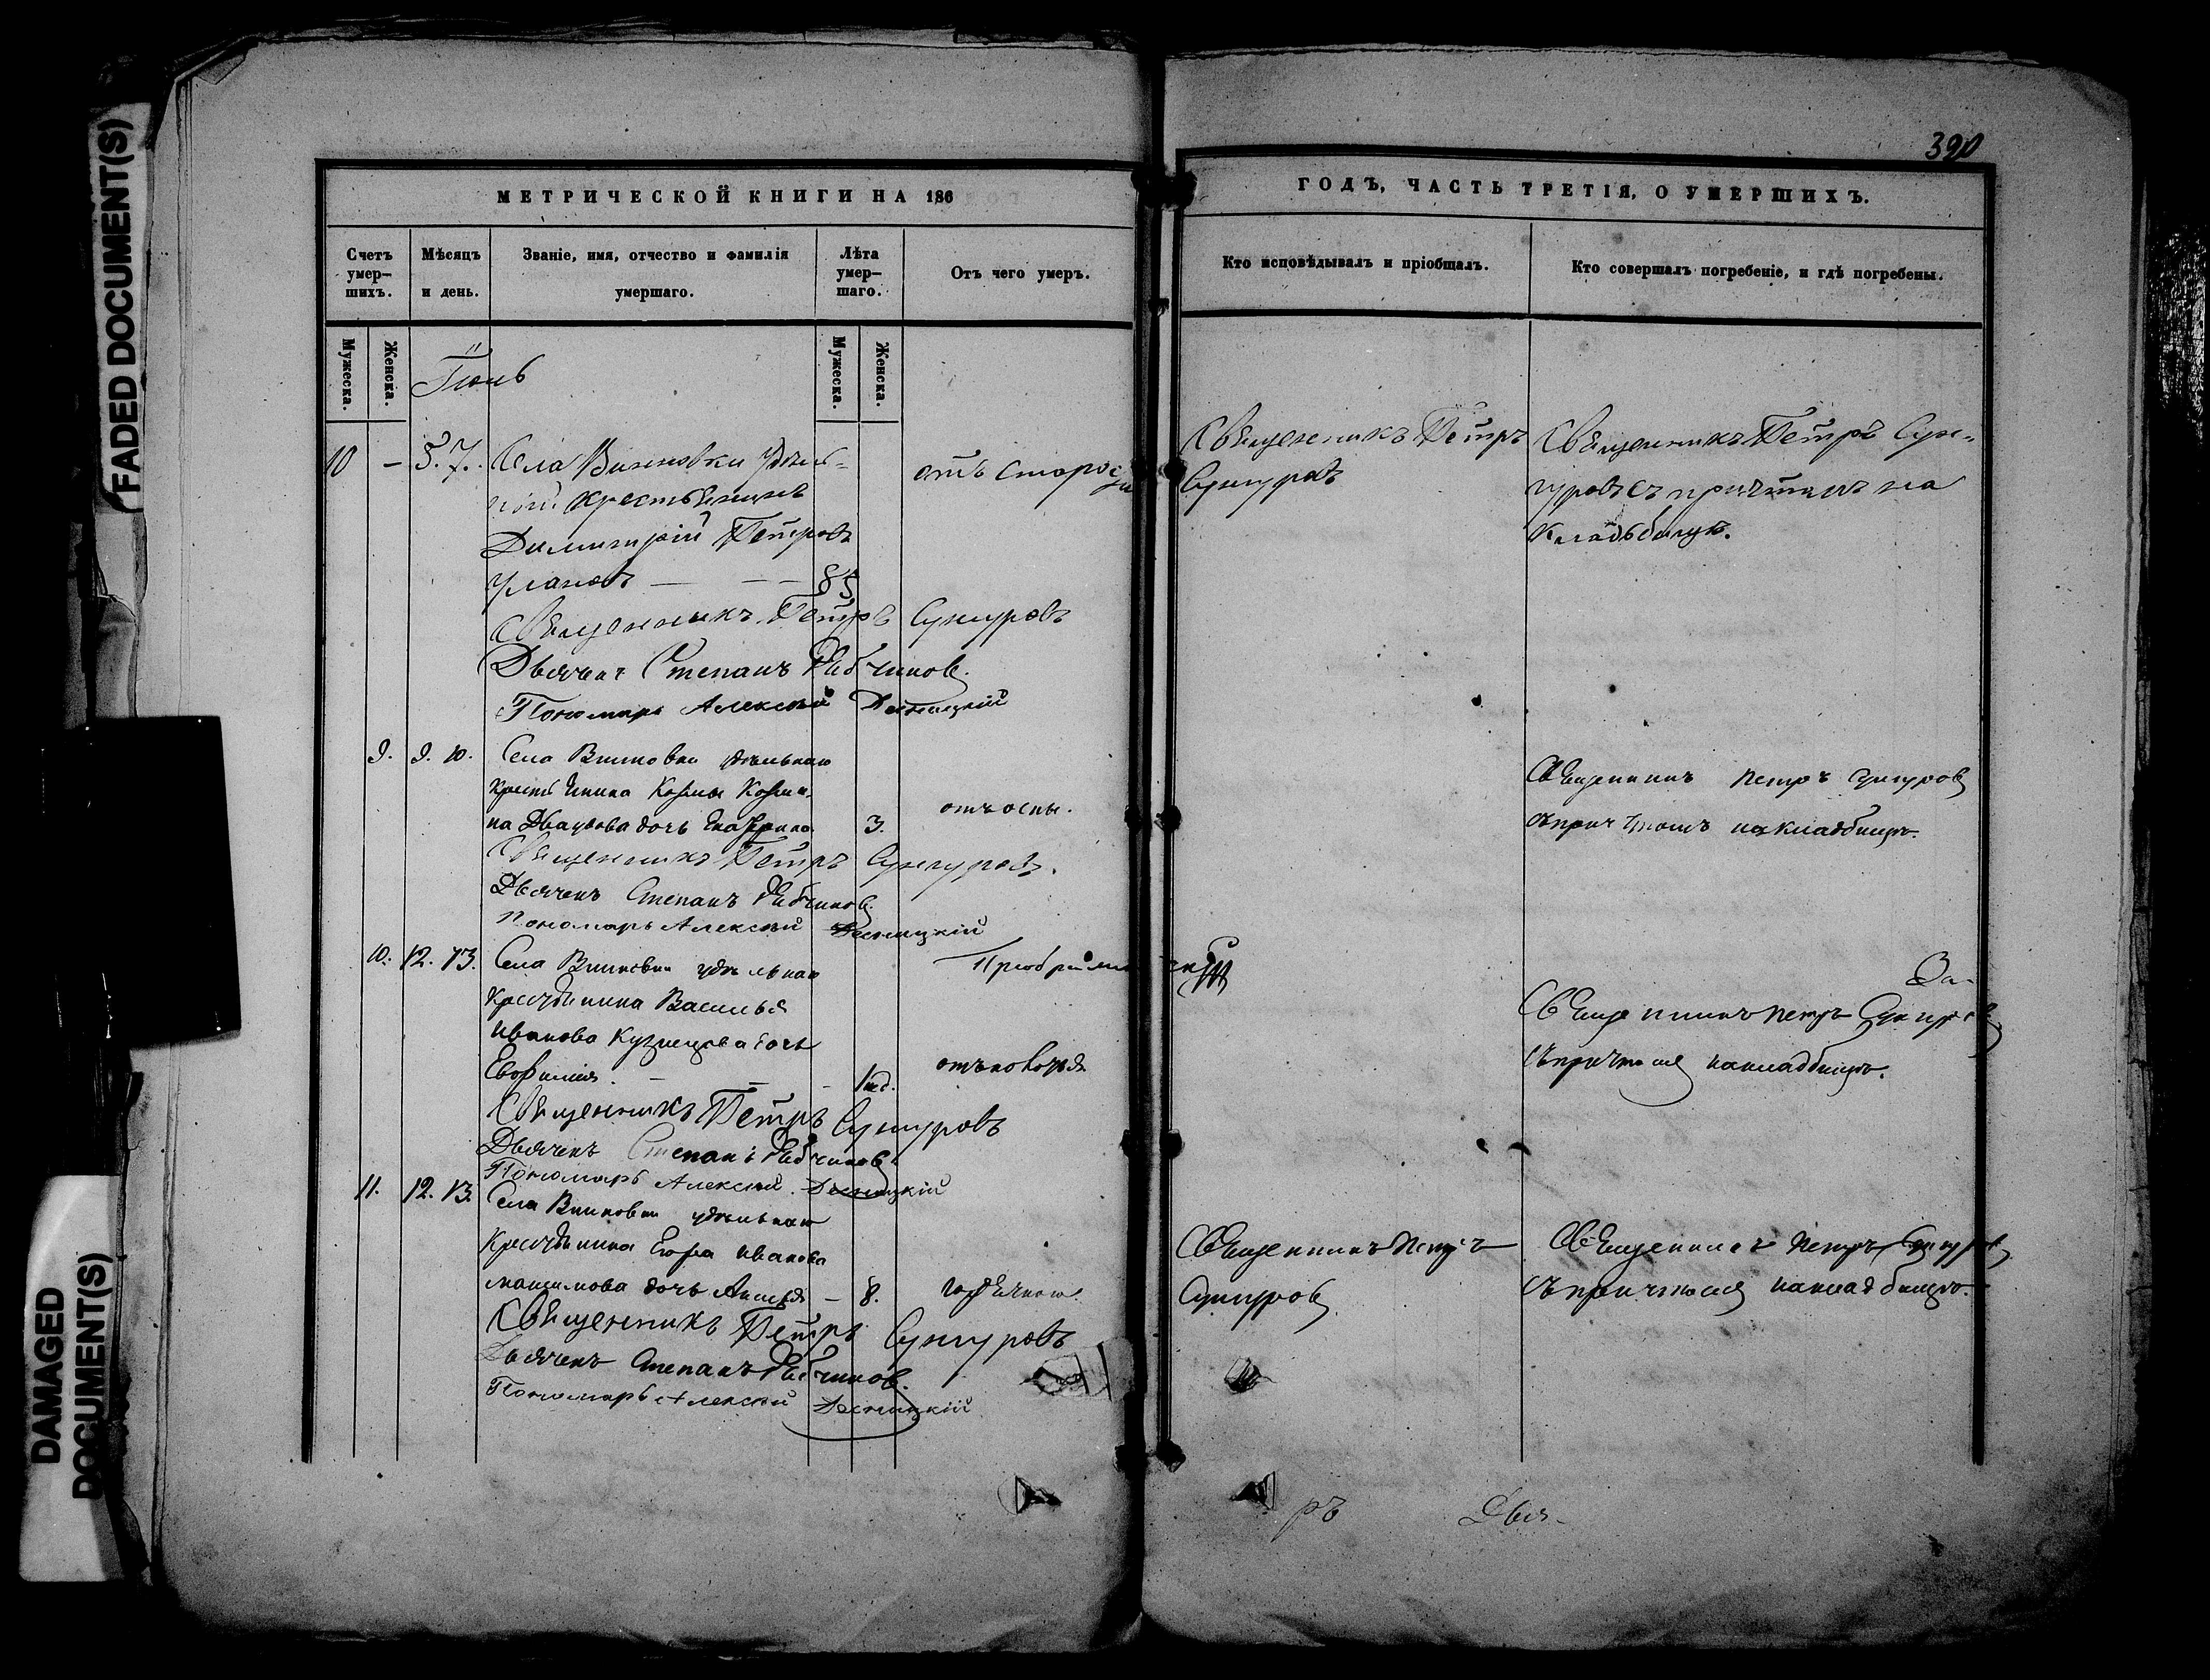 FADED DOCUMENT(S)
DAMAGED
DOCUMENT(S)
390
МЕТРИЧЕСКОЙ КНИГИ НА 186
ГОДЪ, ЧАСТЬ ТРЕТІЯ, О УМЕРШИХЪ.
Счетъ умер-
шихъ.
Мѣсяцъ
и день.
Званіе, имя, отчество и фамилія
умершаго.
Лѣта
умер-
шаго.
Отъ чего умеръ.
Кто исповѣдывалъ и пріобщалъ.
Кто совершалъ погребеніе, и гдѣ погребены.
Мужеска.
Женска.
Мужеска.
Женска.
10 – 5. 7. Села Винновки Удѣль-
ной крестьянинъ
Димитрій Петровъ
Улановъ — — — 85
отъ старос
Священникъ Петръ
Сунгуровъ
Священникъ Петръ Сун-
гуровъ съ причтомъ на
кладбищѣ.
Священникъ Петръ Сунгуровъ
Дьячекъ Степанъ Рябчиковъ.
Пономарь Алексѣй Десницкій
9. 9. 10. Села Винновки удѣльнаго
крестьянина Козмы Козми-
на дочь Екатерина 3.
отъ оспы.
Священникъ Петръ Сунгуровъ
съ причтомъ на кладбищѣ.
Священникъ Петръ Сунгуровъ.
Дьячекъ Степанъ Рябчиковъ.
Пономарь Алексѣй Десницкій
10. 12. 13. Села Винновки удѣльнаго
Крестьянина Василья
Иванова Кузнецова дочь
Евфимія. — — – 1
За-
Священникъ Петръ Сунгуровъ
съ причтомъ на кладбищѣ.
Священникъ Петръ Сунгуровъ
Дьячекъ Степанъ Рябчиковъ
Пономарь Алексѣй Десницкій
11. 12. 13. Села Винновки удѣльнаго
Крестьянина Егора Иванова
Максимова дочь – 8.
горячкою.
Священникъ Петръ
Сунгуровъ
Священникъ Петръ Сунгуровъ
съ причтомъ на кладбищѣ.
Священникъ Петръ Сунгуровъ
Дьячекъ Степанъ Рябчиковъ.
Пономарь Алексѣй Десницкій
ръ Дья-